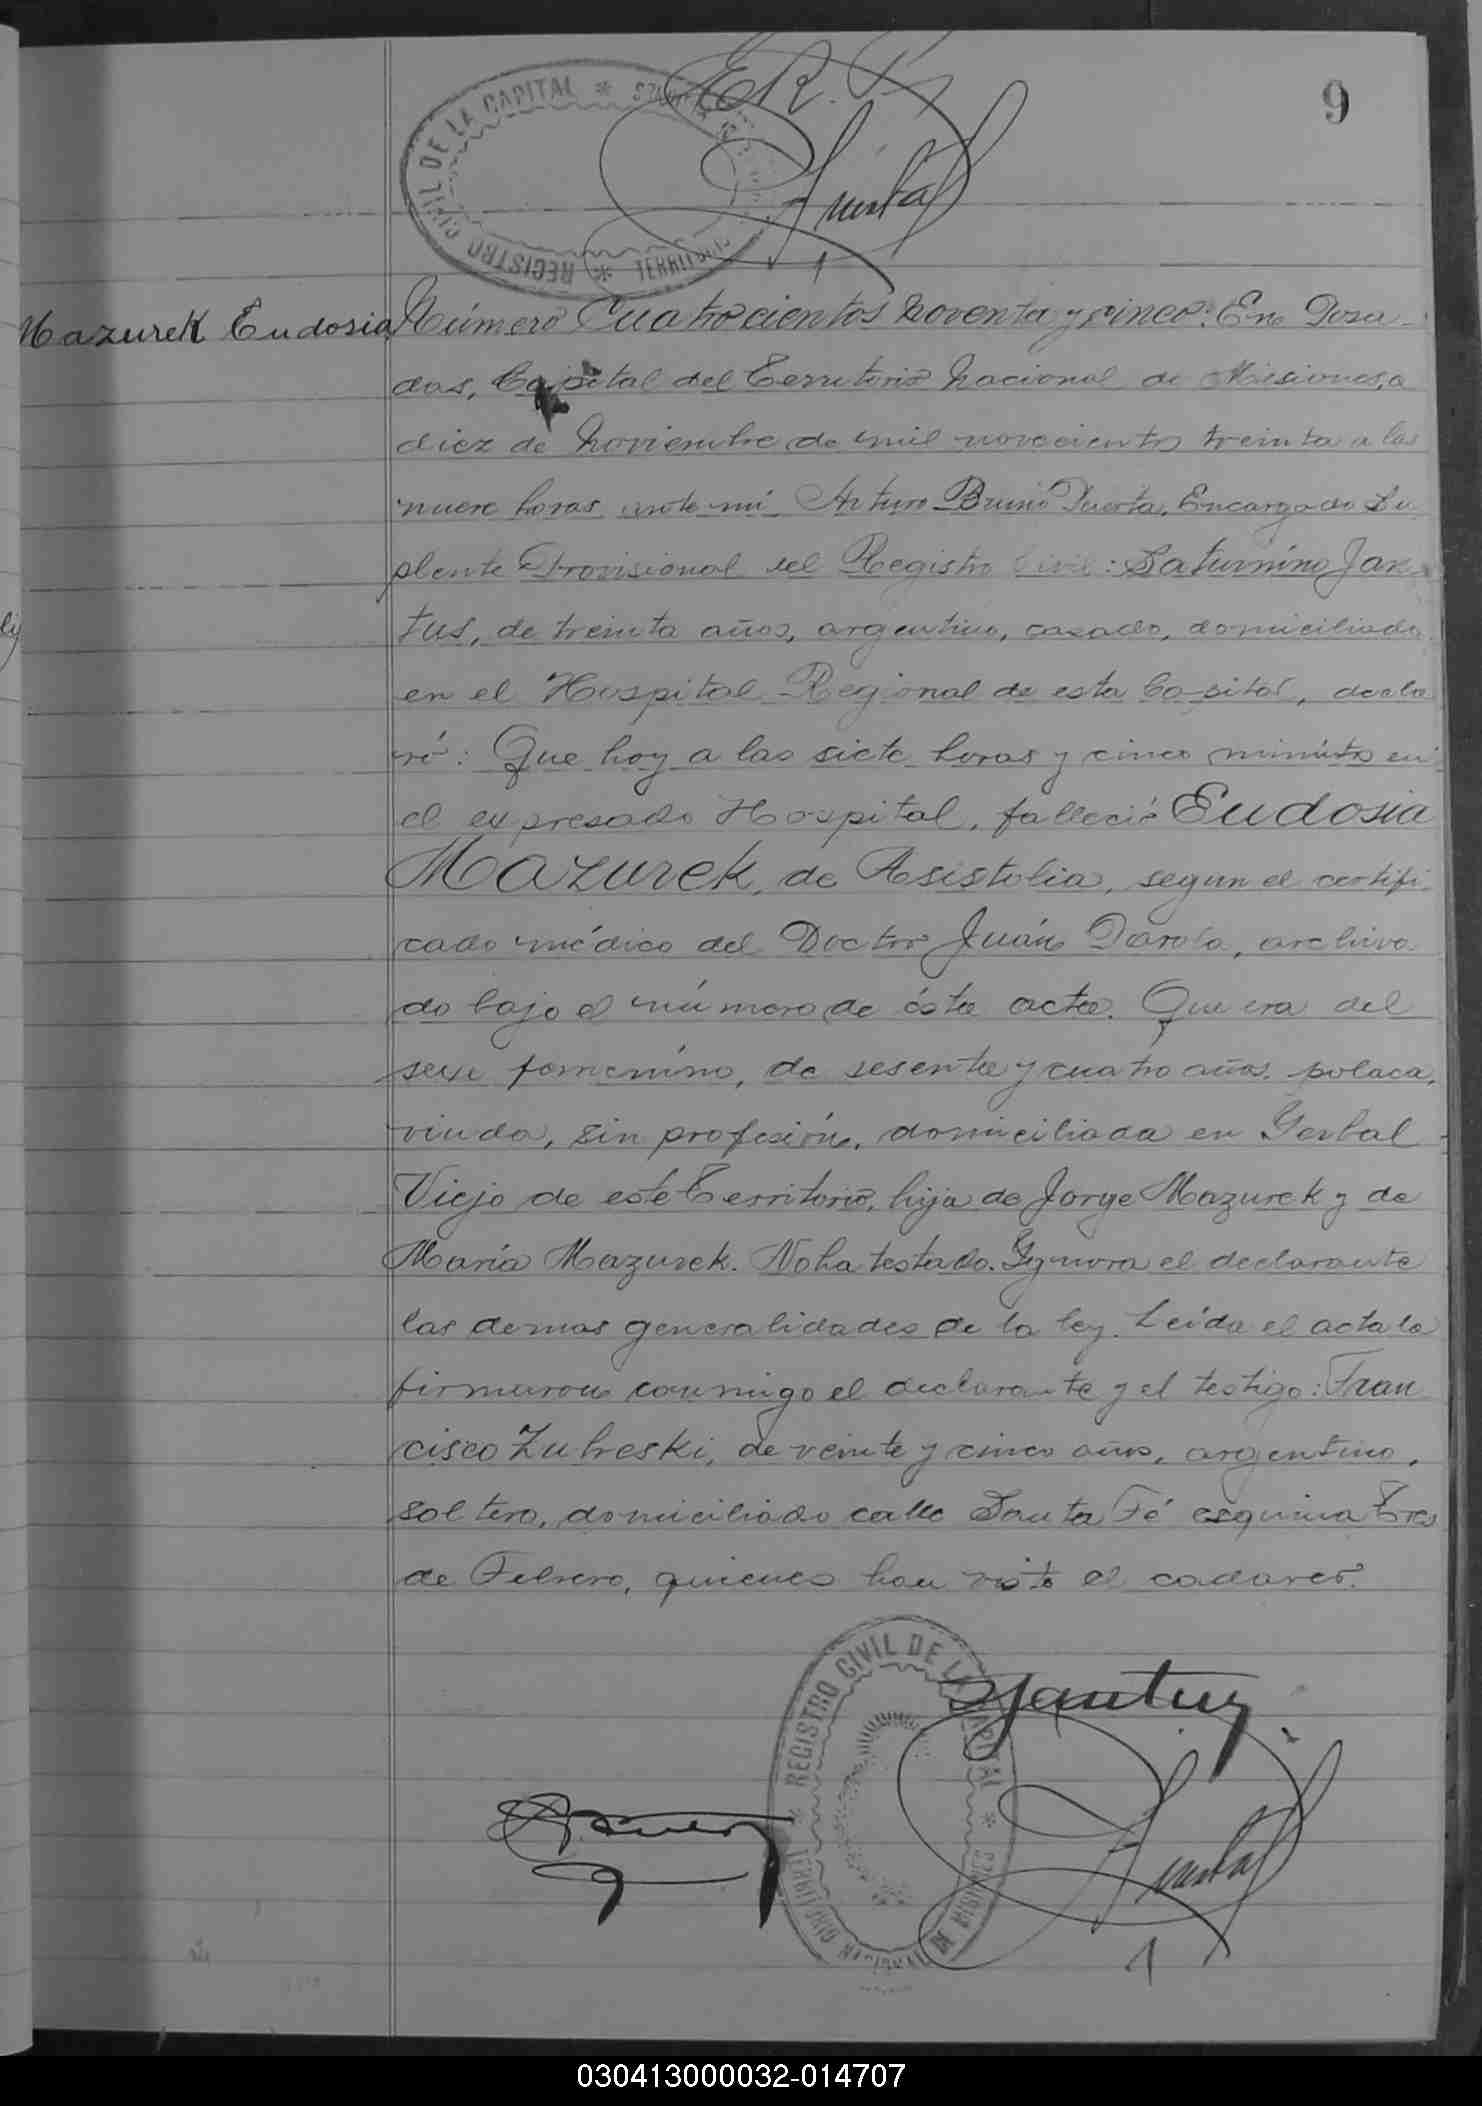 9
REGISTRO CIVIL DE LA CAPITAL
E.R.
Mazurek Eudosia
Número Cuatrocientos noventa y cinco: En Posa-
das, Capital del Territorio Nacional de Misiones, a
diez de Noviembre de mil novecientos treinta a las
nueve horas ante mí Arturo Bruno Puerta, Encargado Su
plente Provisional del Registro Civil: Saturnino Jan
tus, de treinta años, argentino, casado, domiciliado
en el Hospital Regional de esta Capital, decla
ró: Que hoy a las siete horas y cinco minutos en
el expresado Hospital, falleció Eudosia
Mazurek, de Asistolia, segun el certifi
cado médico del Doctor Juán Darola, archiva
do bajo el número de ésta acta. Que era del
sexo femenino, de sesenta y cuatro años, polaca,
viuda, sin profesión, domiciliada en Yerbal
Viejo de este Territorio, hija de Jorge Mazurek y de
María Mazurek. No ha testado. Ygnora el declarante
las demas generalidades de la ley. Leída el acta la
firmaron conmigo el declarante y el testigo: Fran
cisco Zubreski, de veinte y cinco años, argentino,
soltero, domiciliado calle Santa Fé esquina Tres
de Febrero, quienes han visto el cadaver.
REGISTRO CIVIL DE LA CAPITAL
Jantus
030413000032-014707